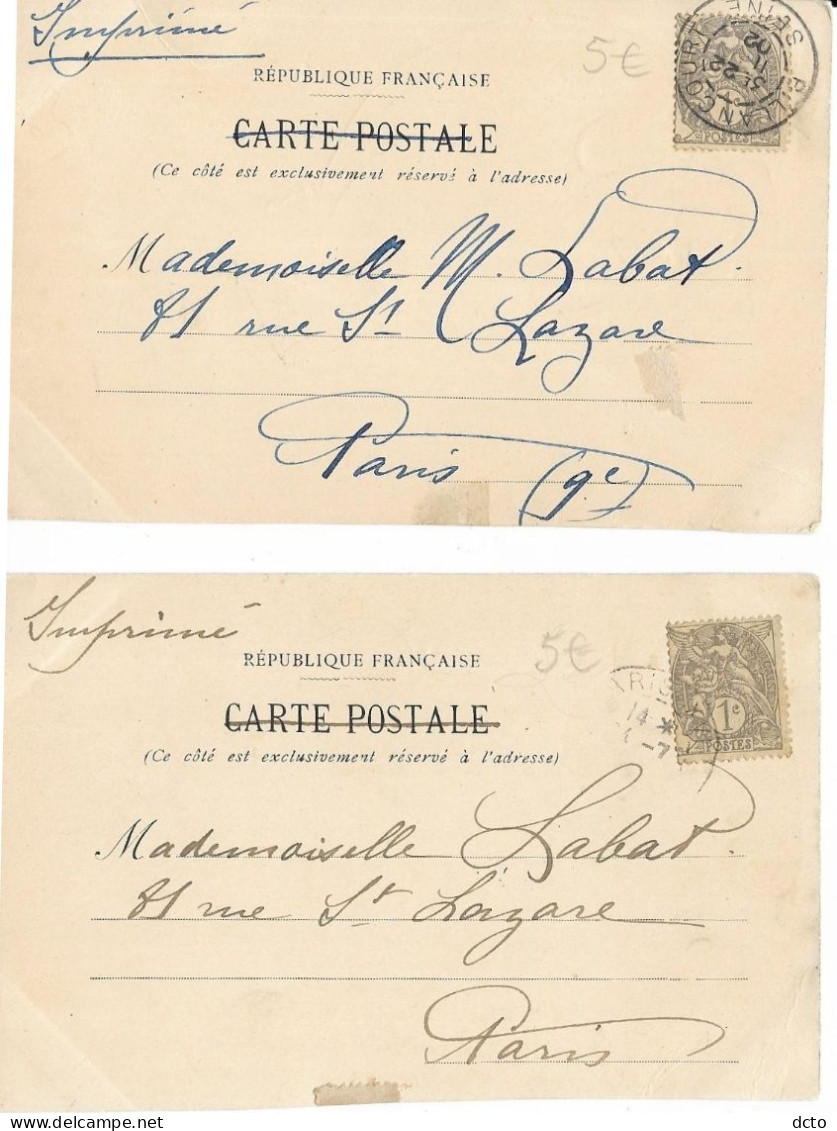 Imprimé
5€
RÉPUBLIQUE FRANÇAISE
CARTE POSTALE
(Ce côté est exclusivement réservé à l'adresse)
POSTES
LANCOURT
SEINE
22
02
Mademoiselle M. Labat.
81 rue St Lazare
Paris (9e)
Imprimé
5€
RÉPUBLIQUE FRANÇAISE
CARTE POSTALE
(Ce côté est exclusivement réservé à l'adresse)
1c
POSTES
14
Mademoiselle Labat.
81 rue St Lazare
Paris
dcto